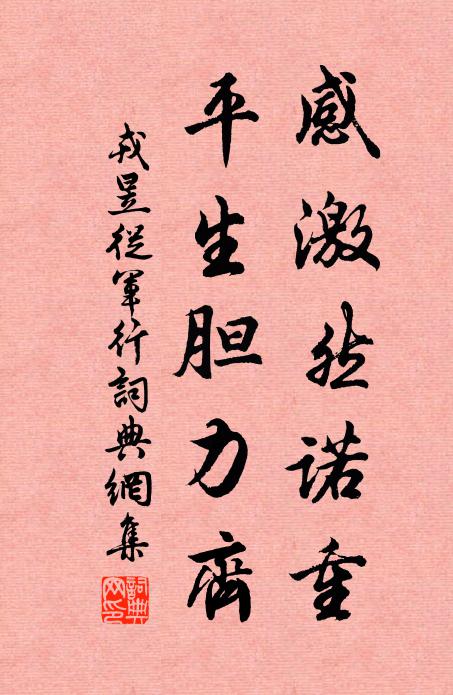 感激然诺重
平生胆力齊
戎昱從軍行詞典網集
詞典网印